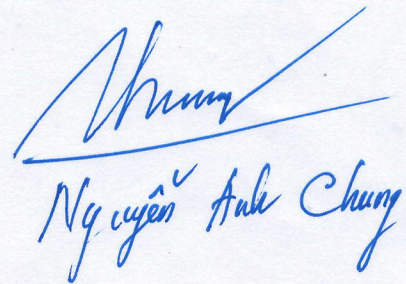 Chung
Nguyễn Anh Chung